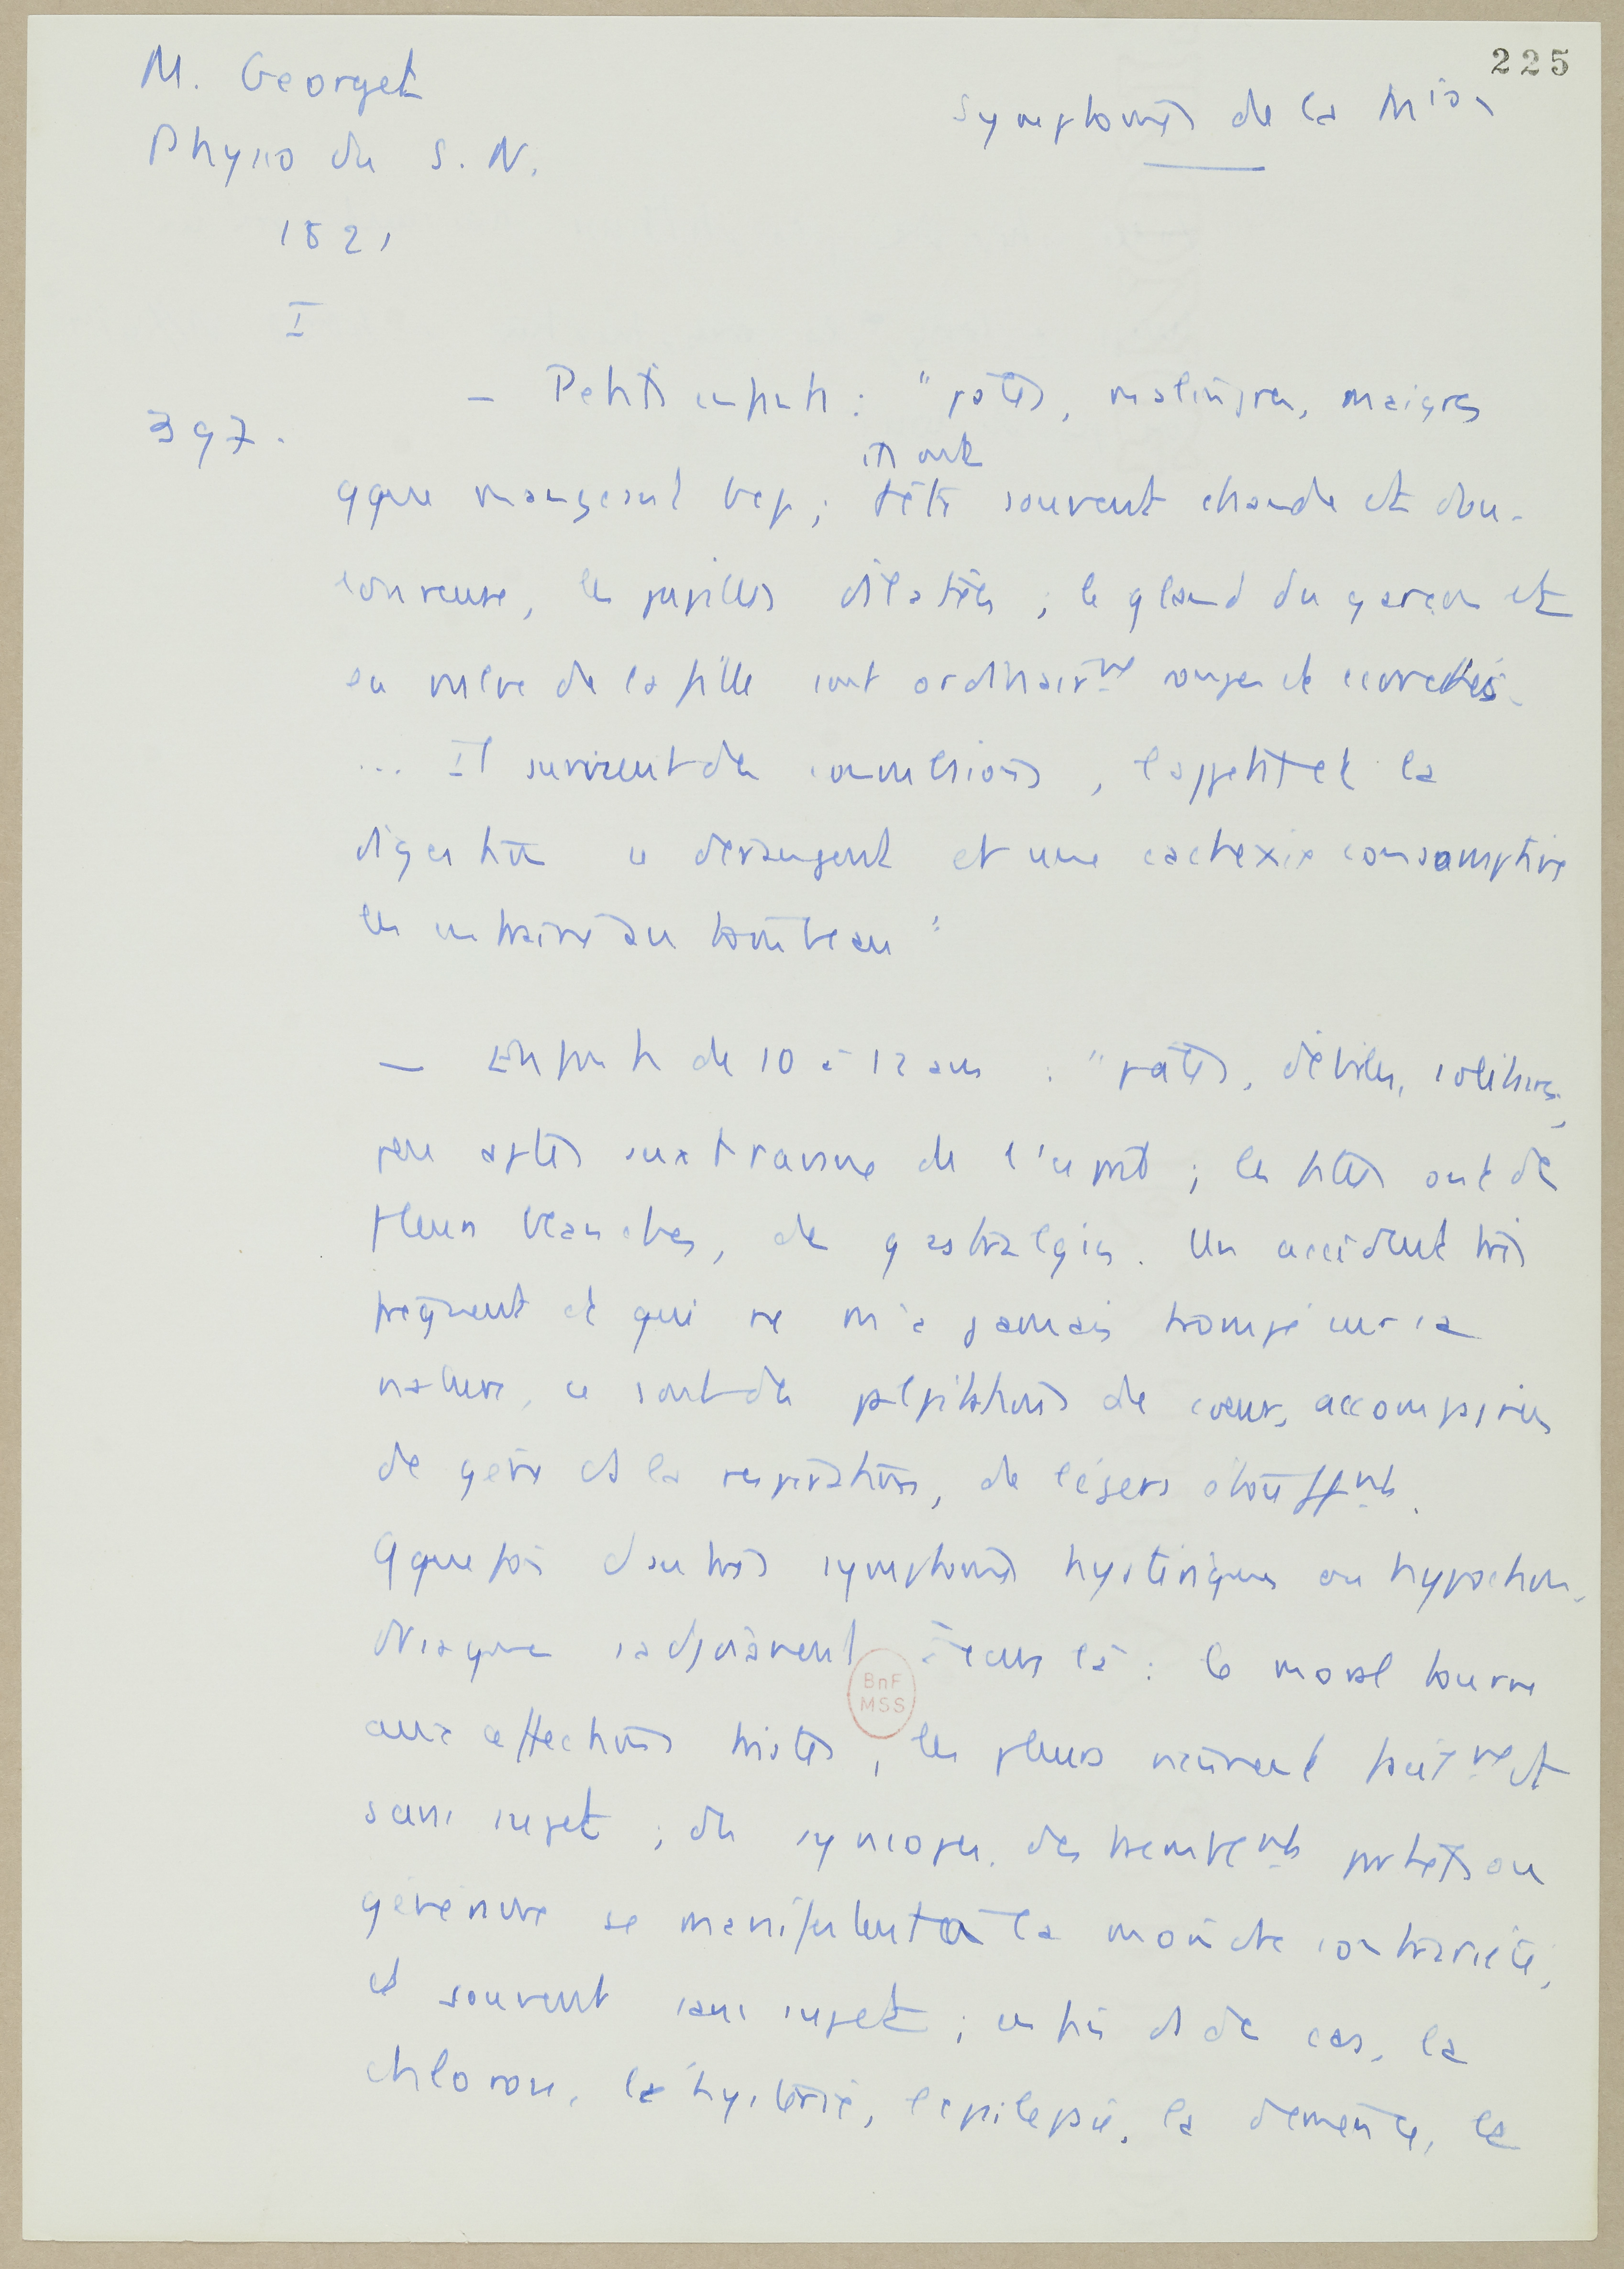 225
M. Georget
Symptomes de la M^ion
Physio du S.N.
1821
I
397.
— Petits enfants : "pâles, malingres, maigres
ils ont
qque mangeant bcp ; tête souvent chaude et dou-
loureuse, les pupilles dilatées ; le gland du garçon et
la vulve de la fille sont ordinair^mt rouges et excoriés.
... Il survient des convulsions, l'appétit et la
digestion se dérangent et une cachexie consomptive
les entraîne au tombeau"
— Enfants de 10 à 12 ans : "pâles, débiles, solitaires,
peu aptes aux travaux de l'esprit ; les filles ont des
fleurs blanches, des gastralgies. Un accident très
fréquent et qui ne m'a jamais trompé sur sa
nature, ce sont des palpitations de coeur, accompagnées
de gêne ds la respiration, de légers étouff^mts.
Qquefois d'autres symptomes hystériques ou hypochon-
driaques s'adjoignent à ceux là : le moral tourne
aux affections tristes, les pleurs viennent facil^mt et
sans sujet ; des syncopes, des trembl^mts partiels ou
généraux se manifestent à la moindre contrariété,
et souvent sans sujet ; enfin ds des cas, la
chlorose, l'hystérie, l'épilepsie, la démence, la
BnF
MSS